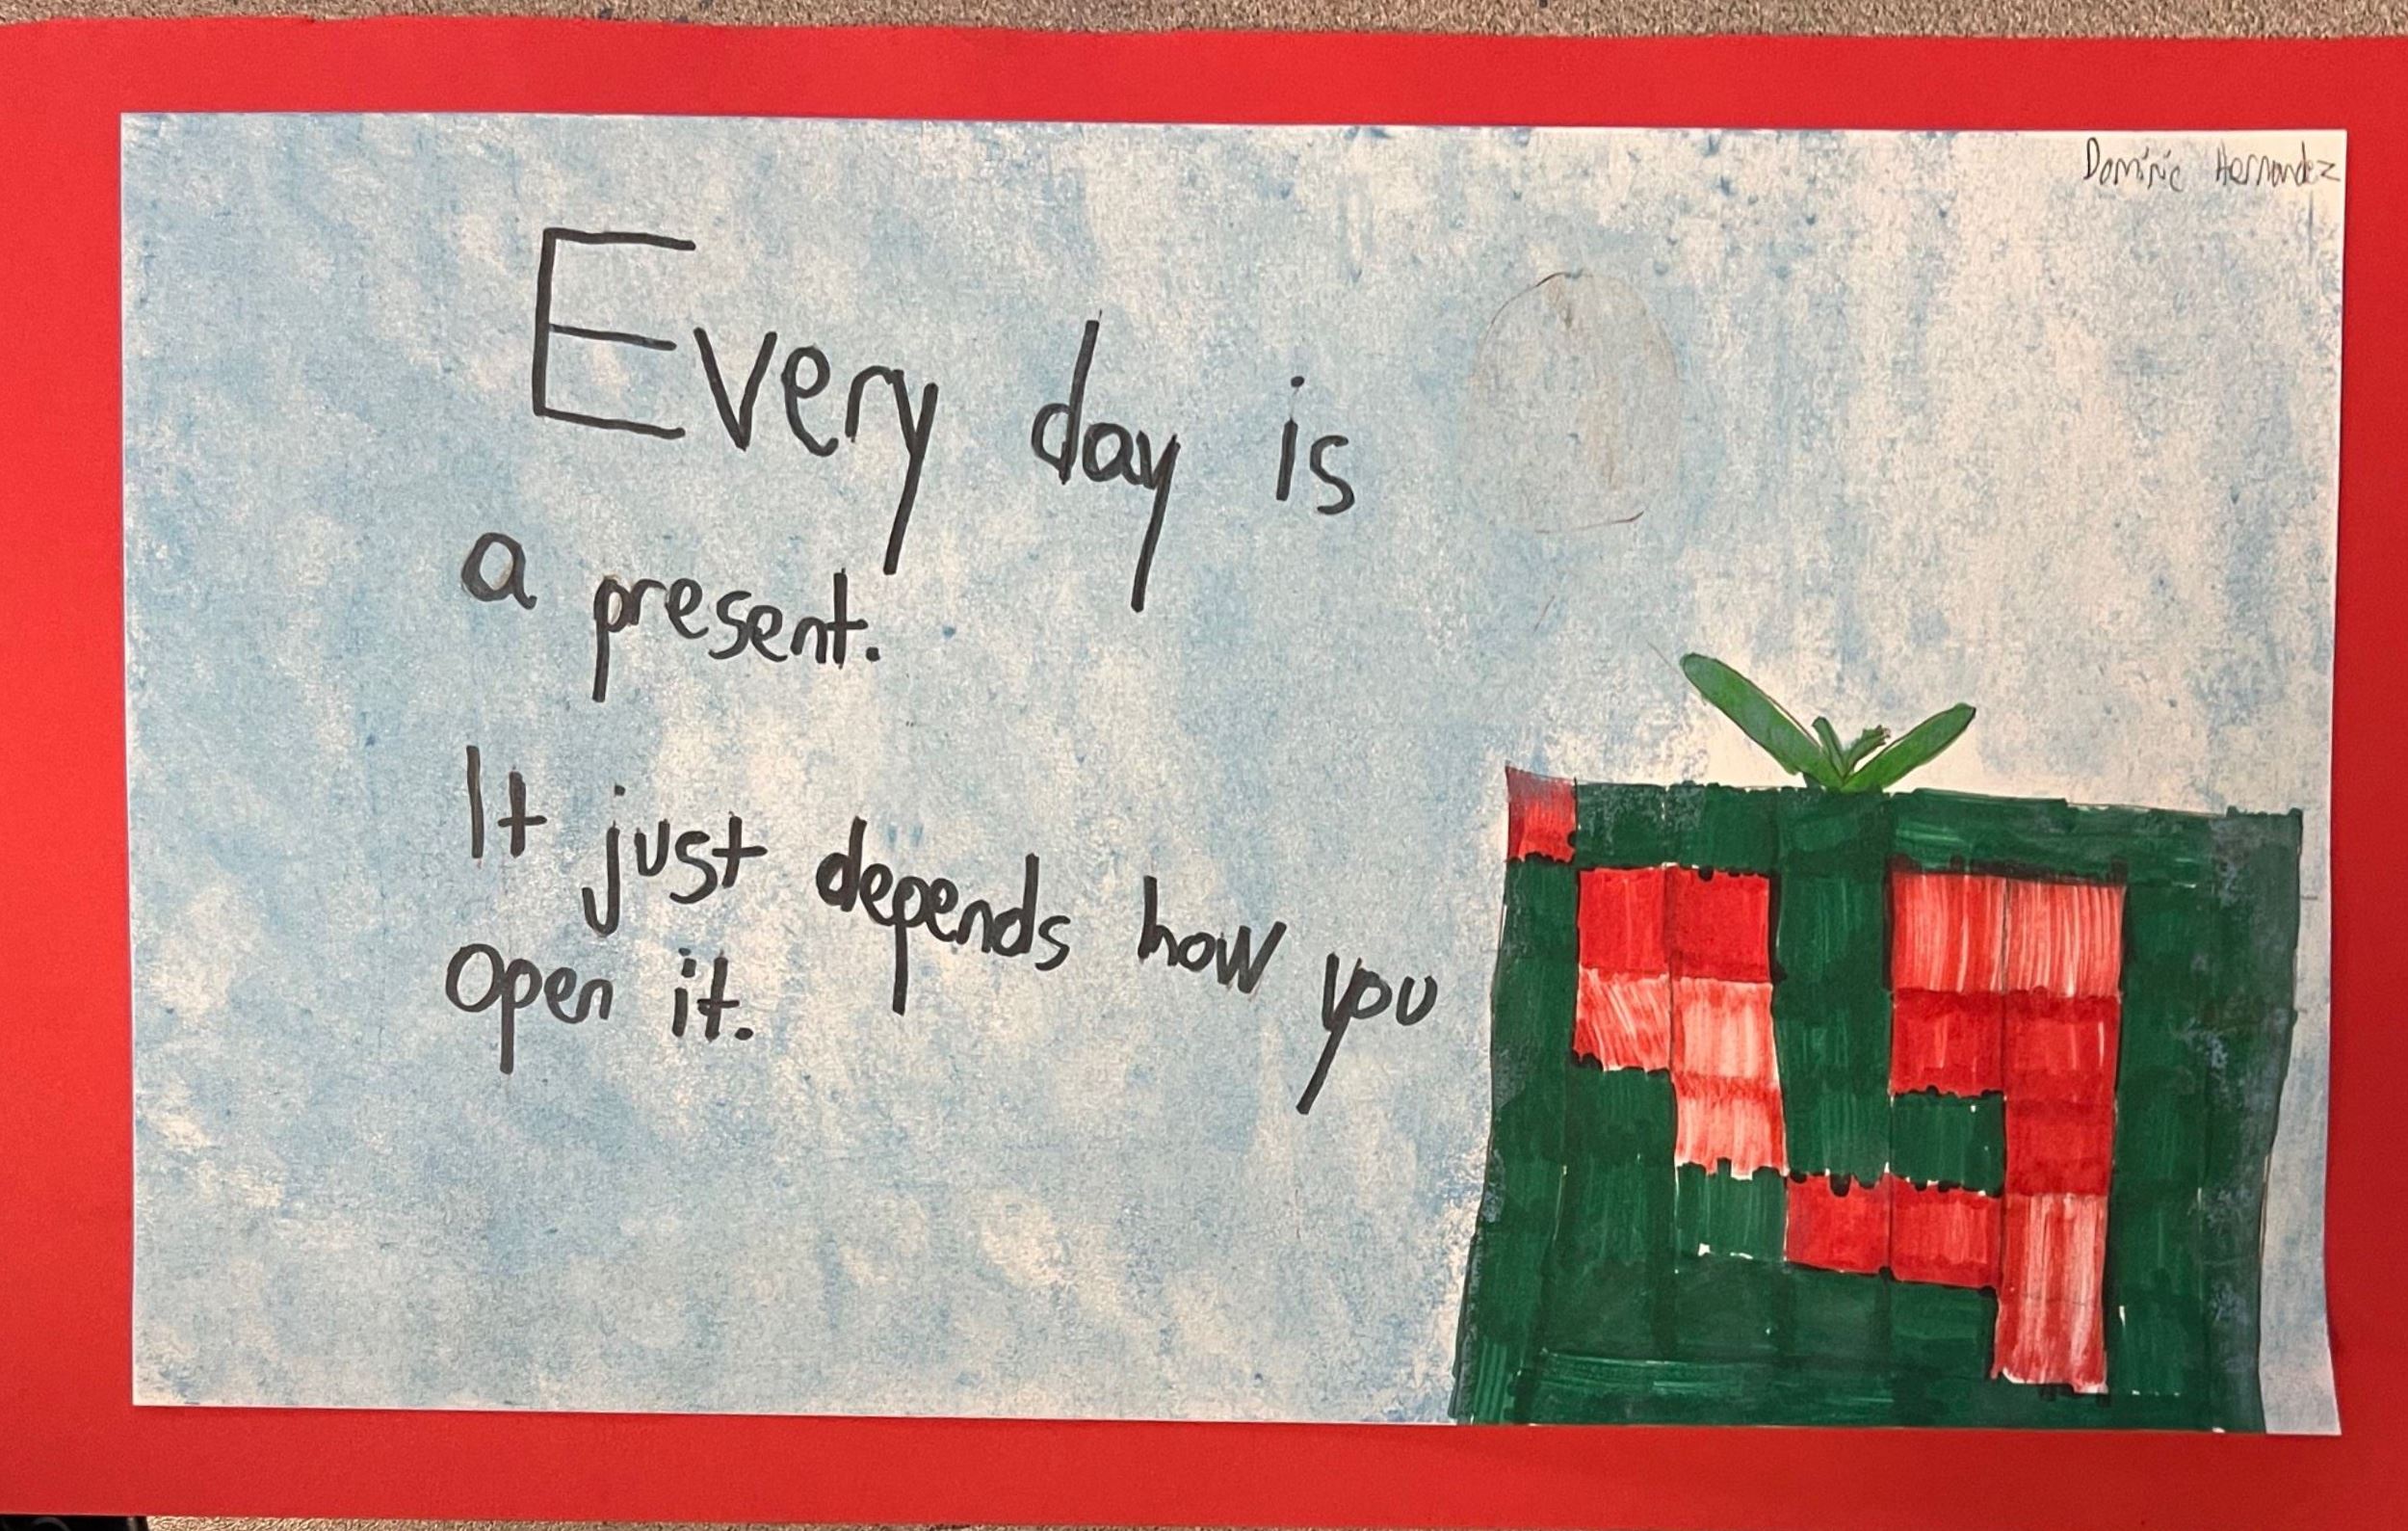 Dominic Hernandez
Every day is
a present.
It just depends how you
open it.